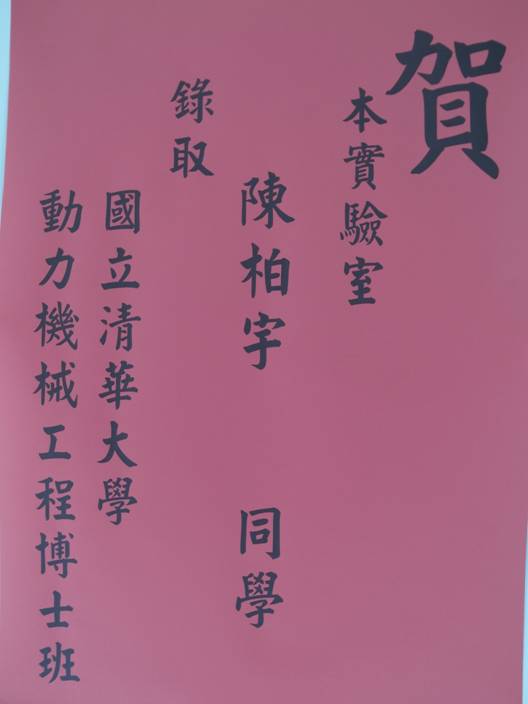 賀
本實驗室
陳柏宇 同學
錄取
國立清華大學
動力機械工程博士班